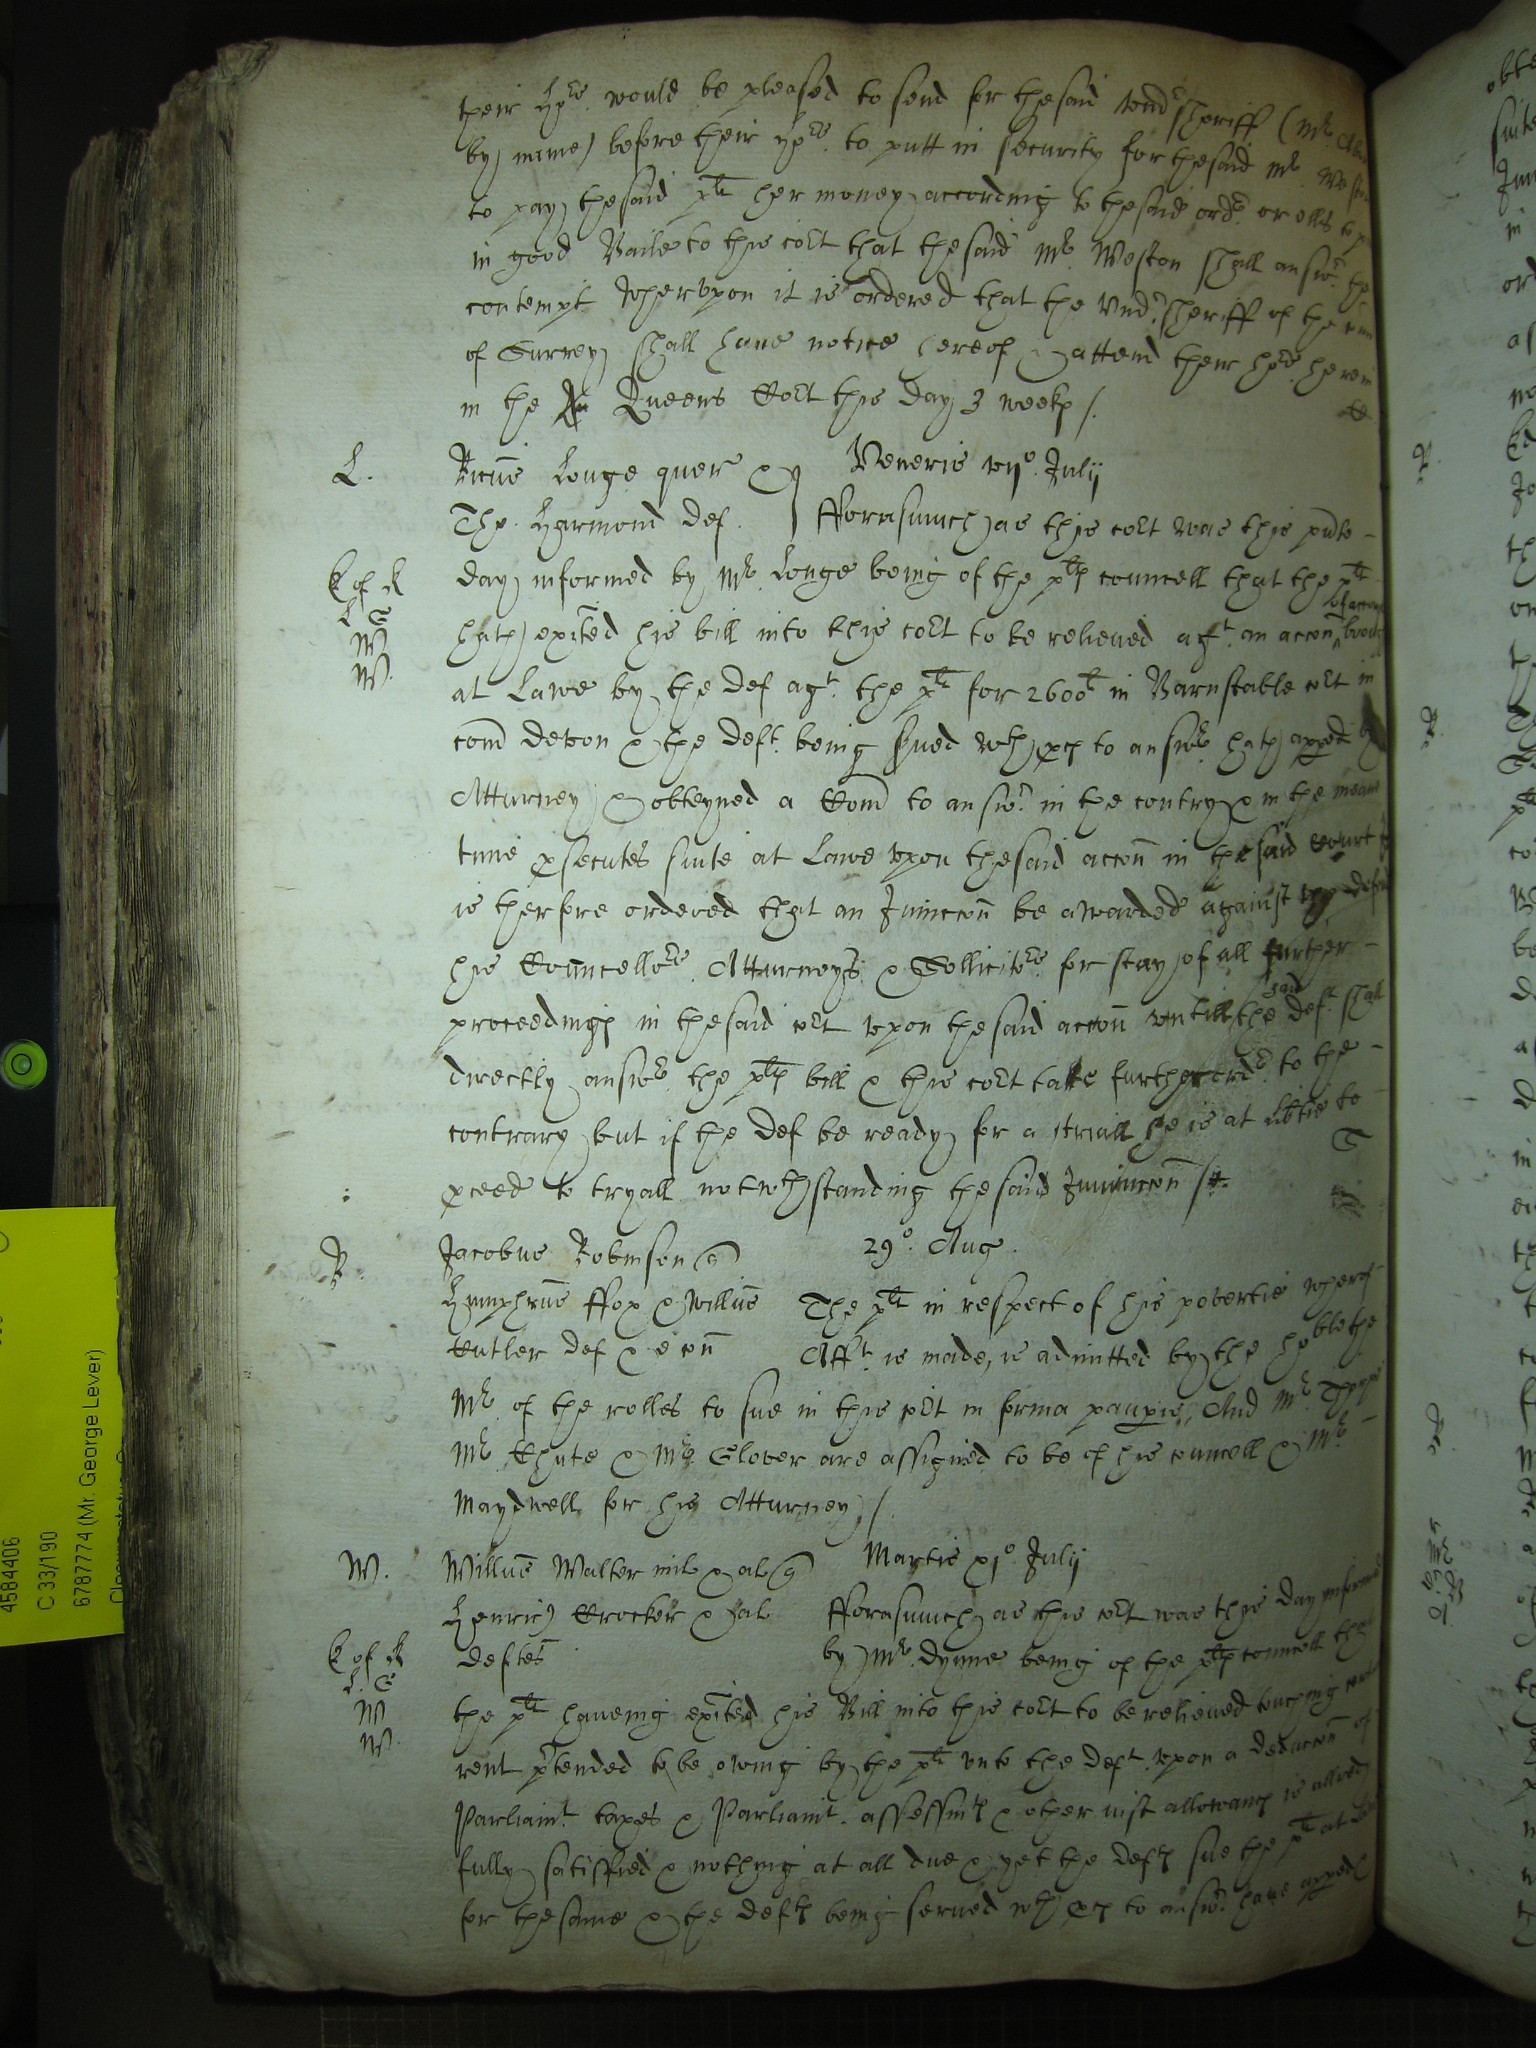 their Hpps. would be pleased to send for thesaid vnd'sheriff (Mr.
by name) before their hpps. to putt in security for thesaid Mr.
to pay thesaid plt her money according to thesaid ordr. or ells to
in good Baile to this Cort that thesaid Mr. Weston shall answ'. the
contempt Wherevpon it is ordered that the Vnd'sheriff of the
of Surrey shall haue notice hereof & attend their hpps. herein
in the Queens Cort this day 3 weeks /.
L.
Ricus Longe quer
Tho. Harmond def.
Veneris vijo. Julij
Fforasmuch as this cort was this pnte
day informed by Mr. Longe being of the plts councell that the plt
hath exited his bill into this cort to be relieved agt. an accon
of accompt
at Lawe by the def agt. the plt for 2600li in Barnstable cort in
com devon & the deft. being serued wth pces to answr. hath apped by
Attorney & obteyned a Com to answ'. in the contry & in the meane
time psecutes suite at Lawe vpon thesaid accon in thesaid Court
is therfore ordered that an Iniuccon be awarded against the defend
his Councellors. Attorneys & Sollicitors. for stay of all further
proceedings in thesaid cort vpon thesaid accon vntill the said deft. shall
directly answr. the plts bill & this cort take further ordr. to the
contrary but if the def be ready for a triall he is at libtie to
pceed to tryall notwthstanding thesaid Iniuncon /.
R of R
L G
W
W.
R.
Jacobus Robinson q
Humphrus Ffox & Willus
Cutler def & e con
29o. Aug.
The plt in respect of his povertie wherof
Afft. is made, is admitted by the hoble the
Mr. of the rolles to sue in this cort in forma paupis, And Mr.
Mr. Chute & Mr. Glover are assigned to be of his councell & Mr.
Maydwell for his Attorney /
W.
Willus Walter mil & al q
Henric Crocker & al
deftes
Martis xjo. Julij
Fforasmuch as this cort was this day informed
by Mr. Dynne being of the plts councell that
the plt haueing exited his Bill into this cort to be relieued touching
rent ptended to be owing by the plt vnto the deft. vpon a deduccon of
Parliamt. taxes & Parliamt. assessmts & other iust allowancs is allredy
fully satisfied & nothing at all due & yet the defts sue the plt at
for thesame & the defts being serued wth pces to answ'. haue apped
R of R
L. G
W
W.
4584406
C 33/190
6787774 (Mr. George Lever)